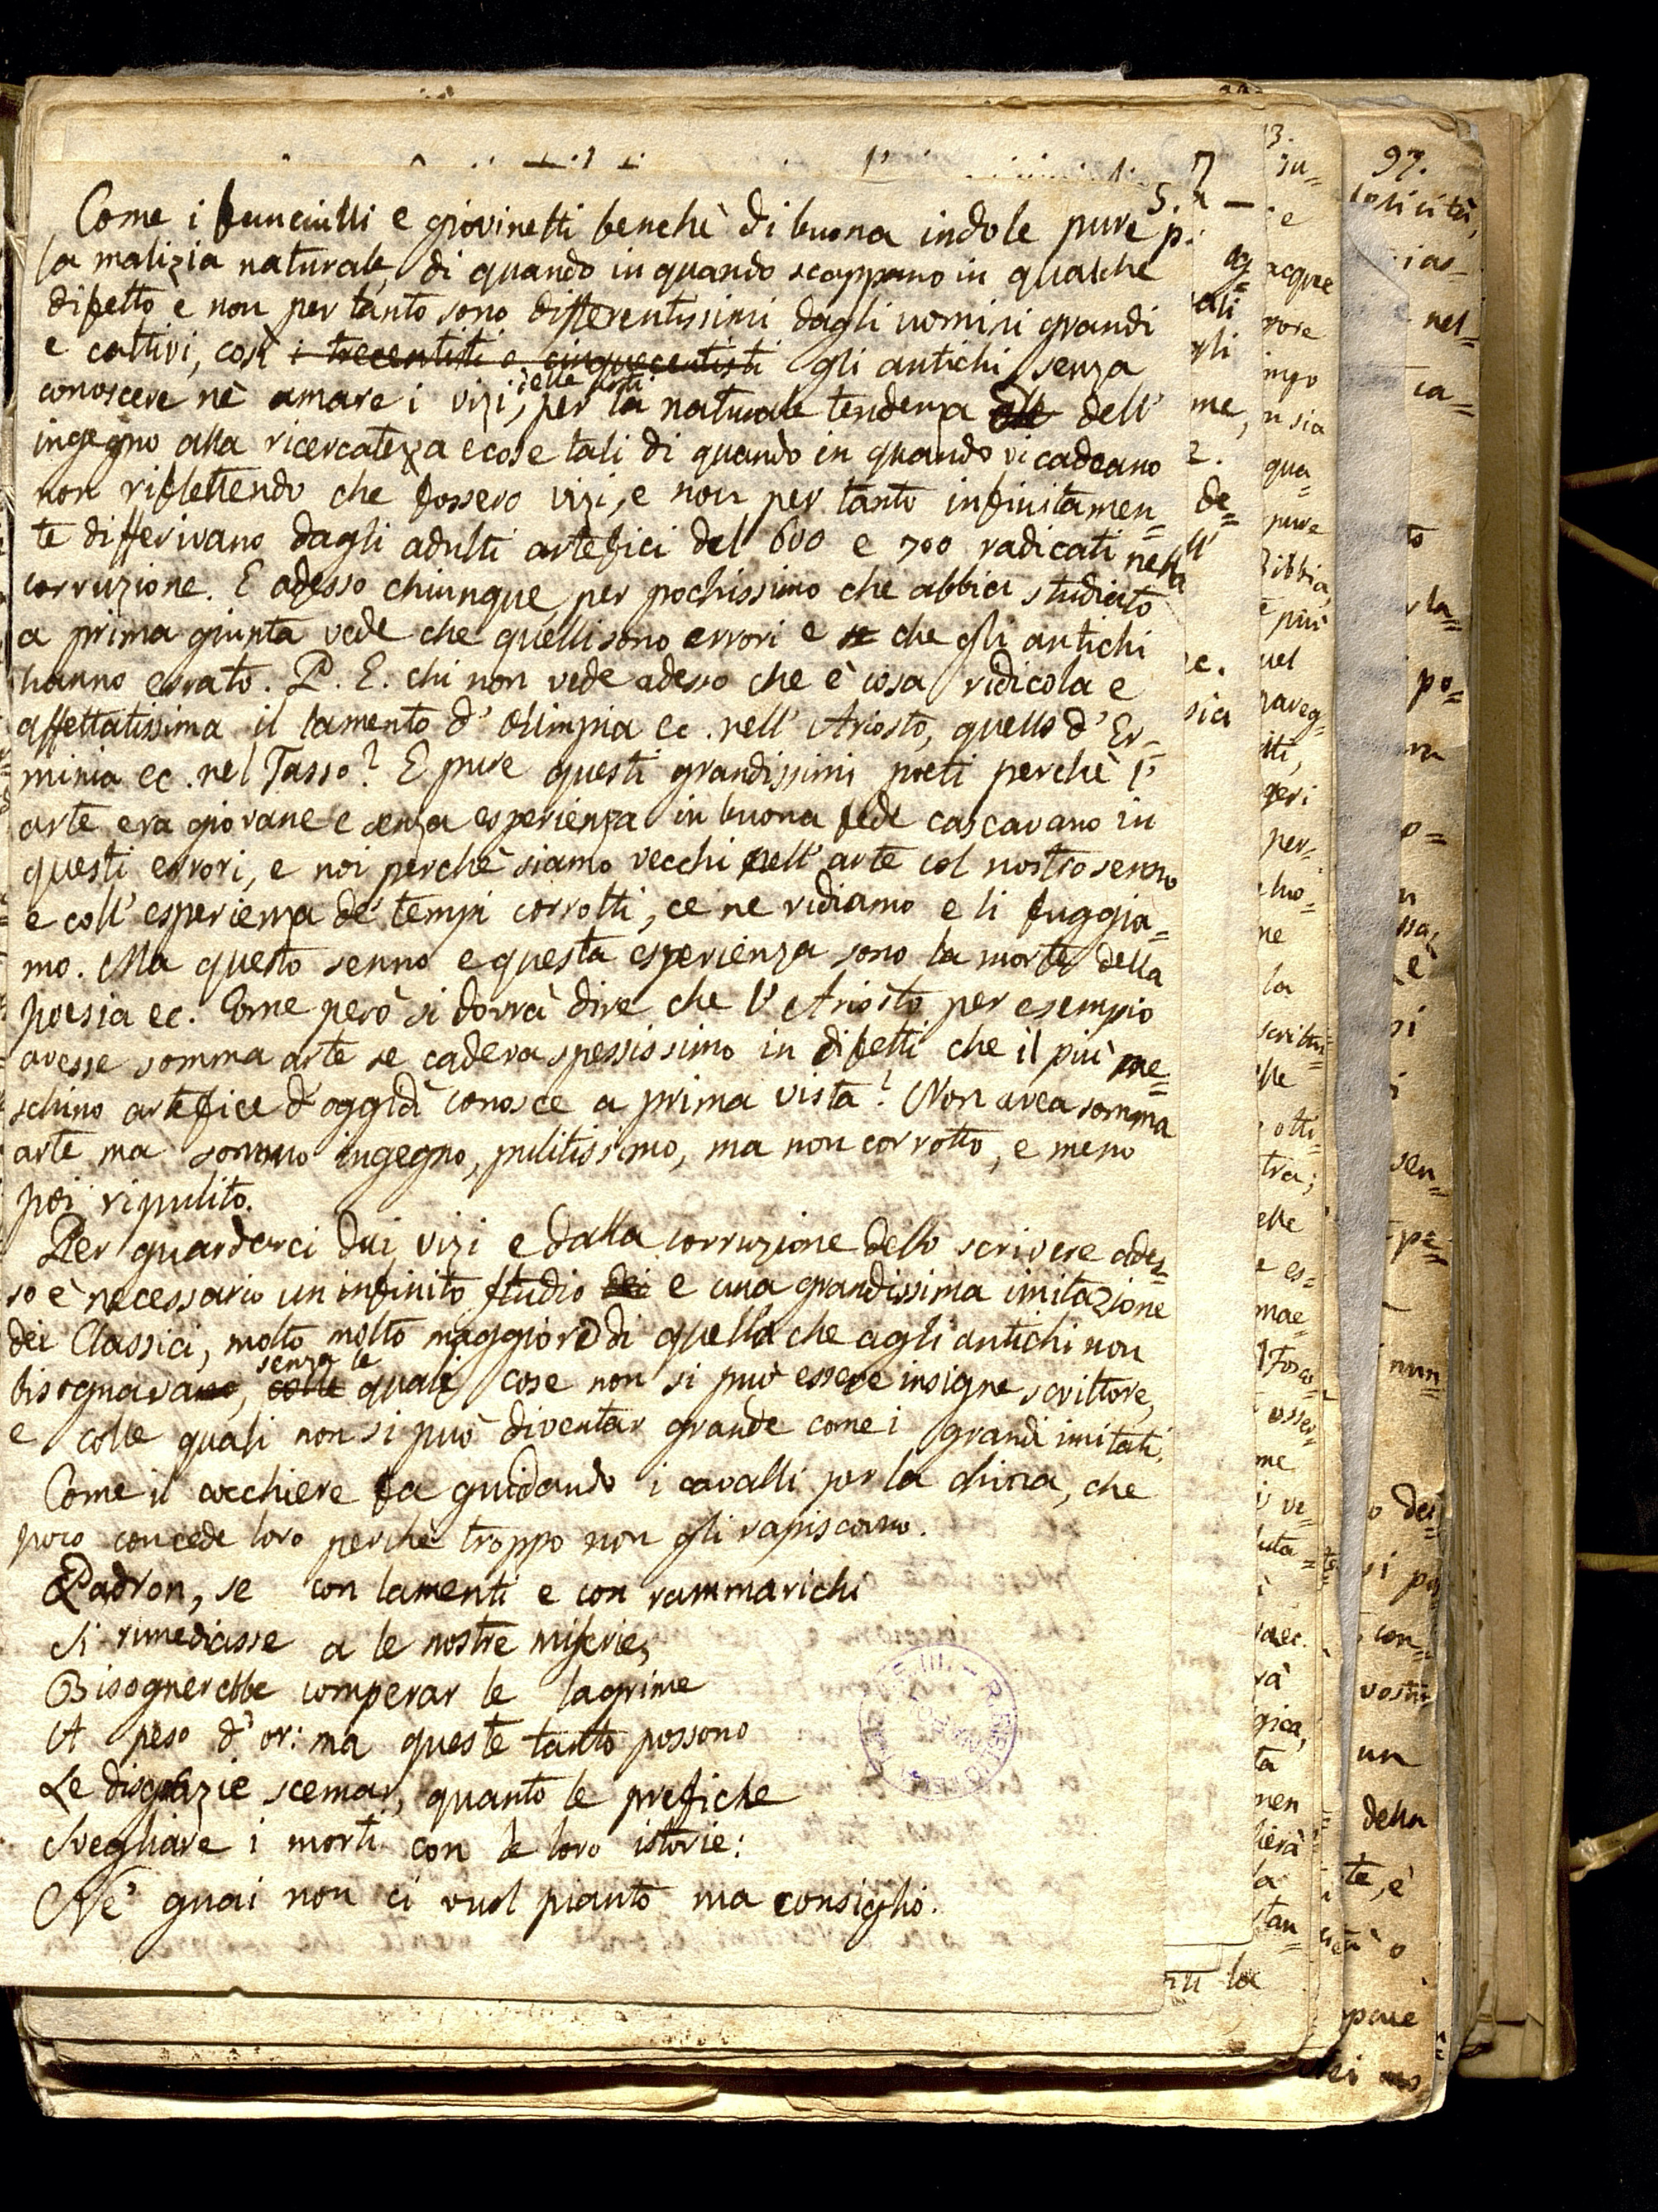 5.
Come i fanciulli e giovinetti benchè di buona indole pure p.
la malizia naturale, di quando in quando scappano in qualche
difetto e non per tanto sono differentissimi dagli uomini grandi
e cattivi, così i trecentisti e cinquecentisti gli antichi senza
conoscere nè amare i vizi delle arti, per la naturale tendenza dell'
ingegno alla ricercatezza e cose tali di quando in quando vi cadeano
non riflettendo che fossero vizi, e non per tanto infinitamen=
te differivano dagli adulti artefici del 600 e 700 radicati nella
corruzione. E adesso chiunque per pochissimo che abbia studiato
a prima giunta vede che quelli sono errori e se che gli antichi
hanno errato. P. E. chi non vede adesso che è cosa ridicola e
affettatissima il lamento d'Olimpia ec. nell'Ariosto, quello d'Er=
minia ec. nel Tasso? E pure questi grandissimi poeti perchè l'
arte era giovane e senza esperienza in buona fede cascavano in
questi errori, e noi perchè siamo vecchi nell'arte col nostro senno
e coll'esperienza de' tempi corrotti, ce ne ridiamo e li fuggia=
mo. Ma questo senno e questa esperienza sono la morte della
poesia ec. Come però si dovrà dire che l'Ariosto per esempio
avesse somma arte se cadeva spessissimo in difetti che il più me=
schino artefice d'oggidì conosce a prima vista? Non avea somma
arte ma sommo ingegno, pulitissimo, ma non corrotto, e meno
poi ripulito.
Per guardarci dai vizi e dalla corruzione dello scrivere ades=
so è necessario un infinito studio dei e una grandissima imitazione
dei Classici, molto molto maggiore di quella che agli antichi non
bisognavano, colle senza le quali cose non si può essere insigne scrittore,
e colle quali non si può diventar grande come i grandi imitati.
Come il cocchiere fa guidando i cavalli per la china, che
poco concede loro perchè troppo non gli rapiscano.
Padron, se con lamenti e con rammarichi
Si rimediasse a le nostre miserie,
Bisognerebbe comperar le lagrime
A peso d'or: ma queste tanto possono
Le disgrazie scemar, quanto le prefiche
Svegliare i morti con le loro istorie:
Ne' guai non ci vuol pianto ma consiglio.
97.